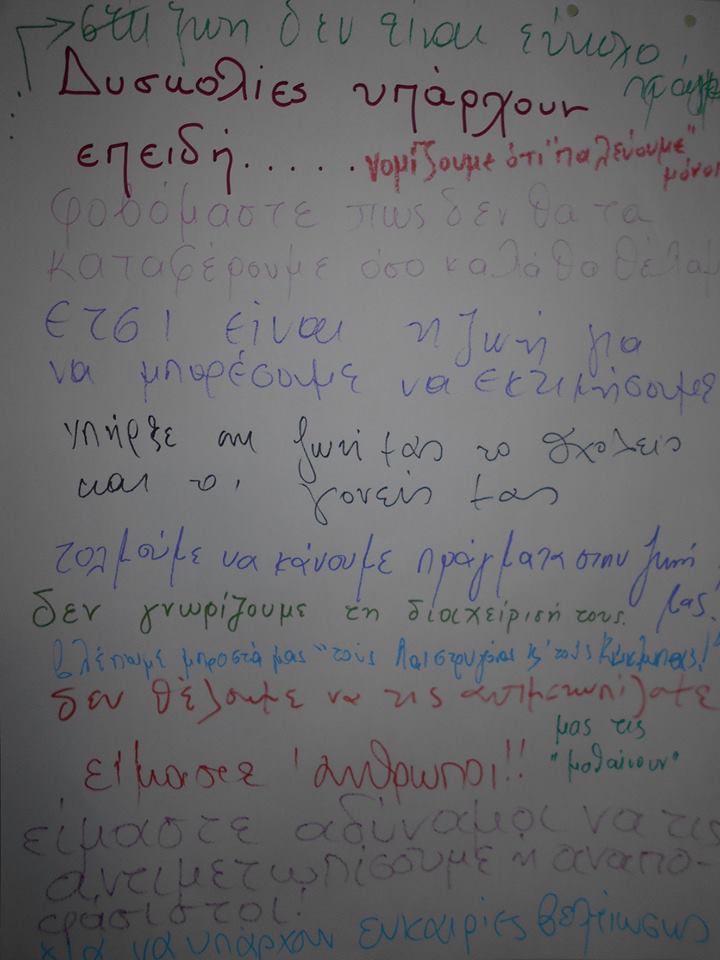 στη ζωή δεν είναι εύκολο
Δυσκολίες υπάρχουν
επειδή..... νομίζουμε ότι "παλεύουμε"
μόνοι
φοβόμαστε πως δεν θα τα
καταφέρουμε όσο καλά θα θέλαμ
ΕΤΣΙ είναι η ζωή για
να μπορέσουμε να εκτιμήσουμε
υπήρξε στη ζωή μας το
και οι γονείς μας
τολμούμε να κάνουμε πράγματα στην ζωή
μας!
δεν γνωρίζουμε τη διαχείρισή τους.
βλέπουμε μπροστά μας "τους Λαιστρυγόνες κ' τους Κύκλωπες!"
δεν θέλουμε να τις
είμαστε άνθρωποι!!
μας τις
"μαθαίνουν"
είμαστε αδύναμοι να τις
αντιμετωπίσουμε ή αναπο-
φάσιστοι!
για να υπάρχουν ευκαιρίες βελτίωσης